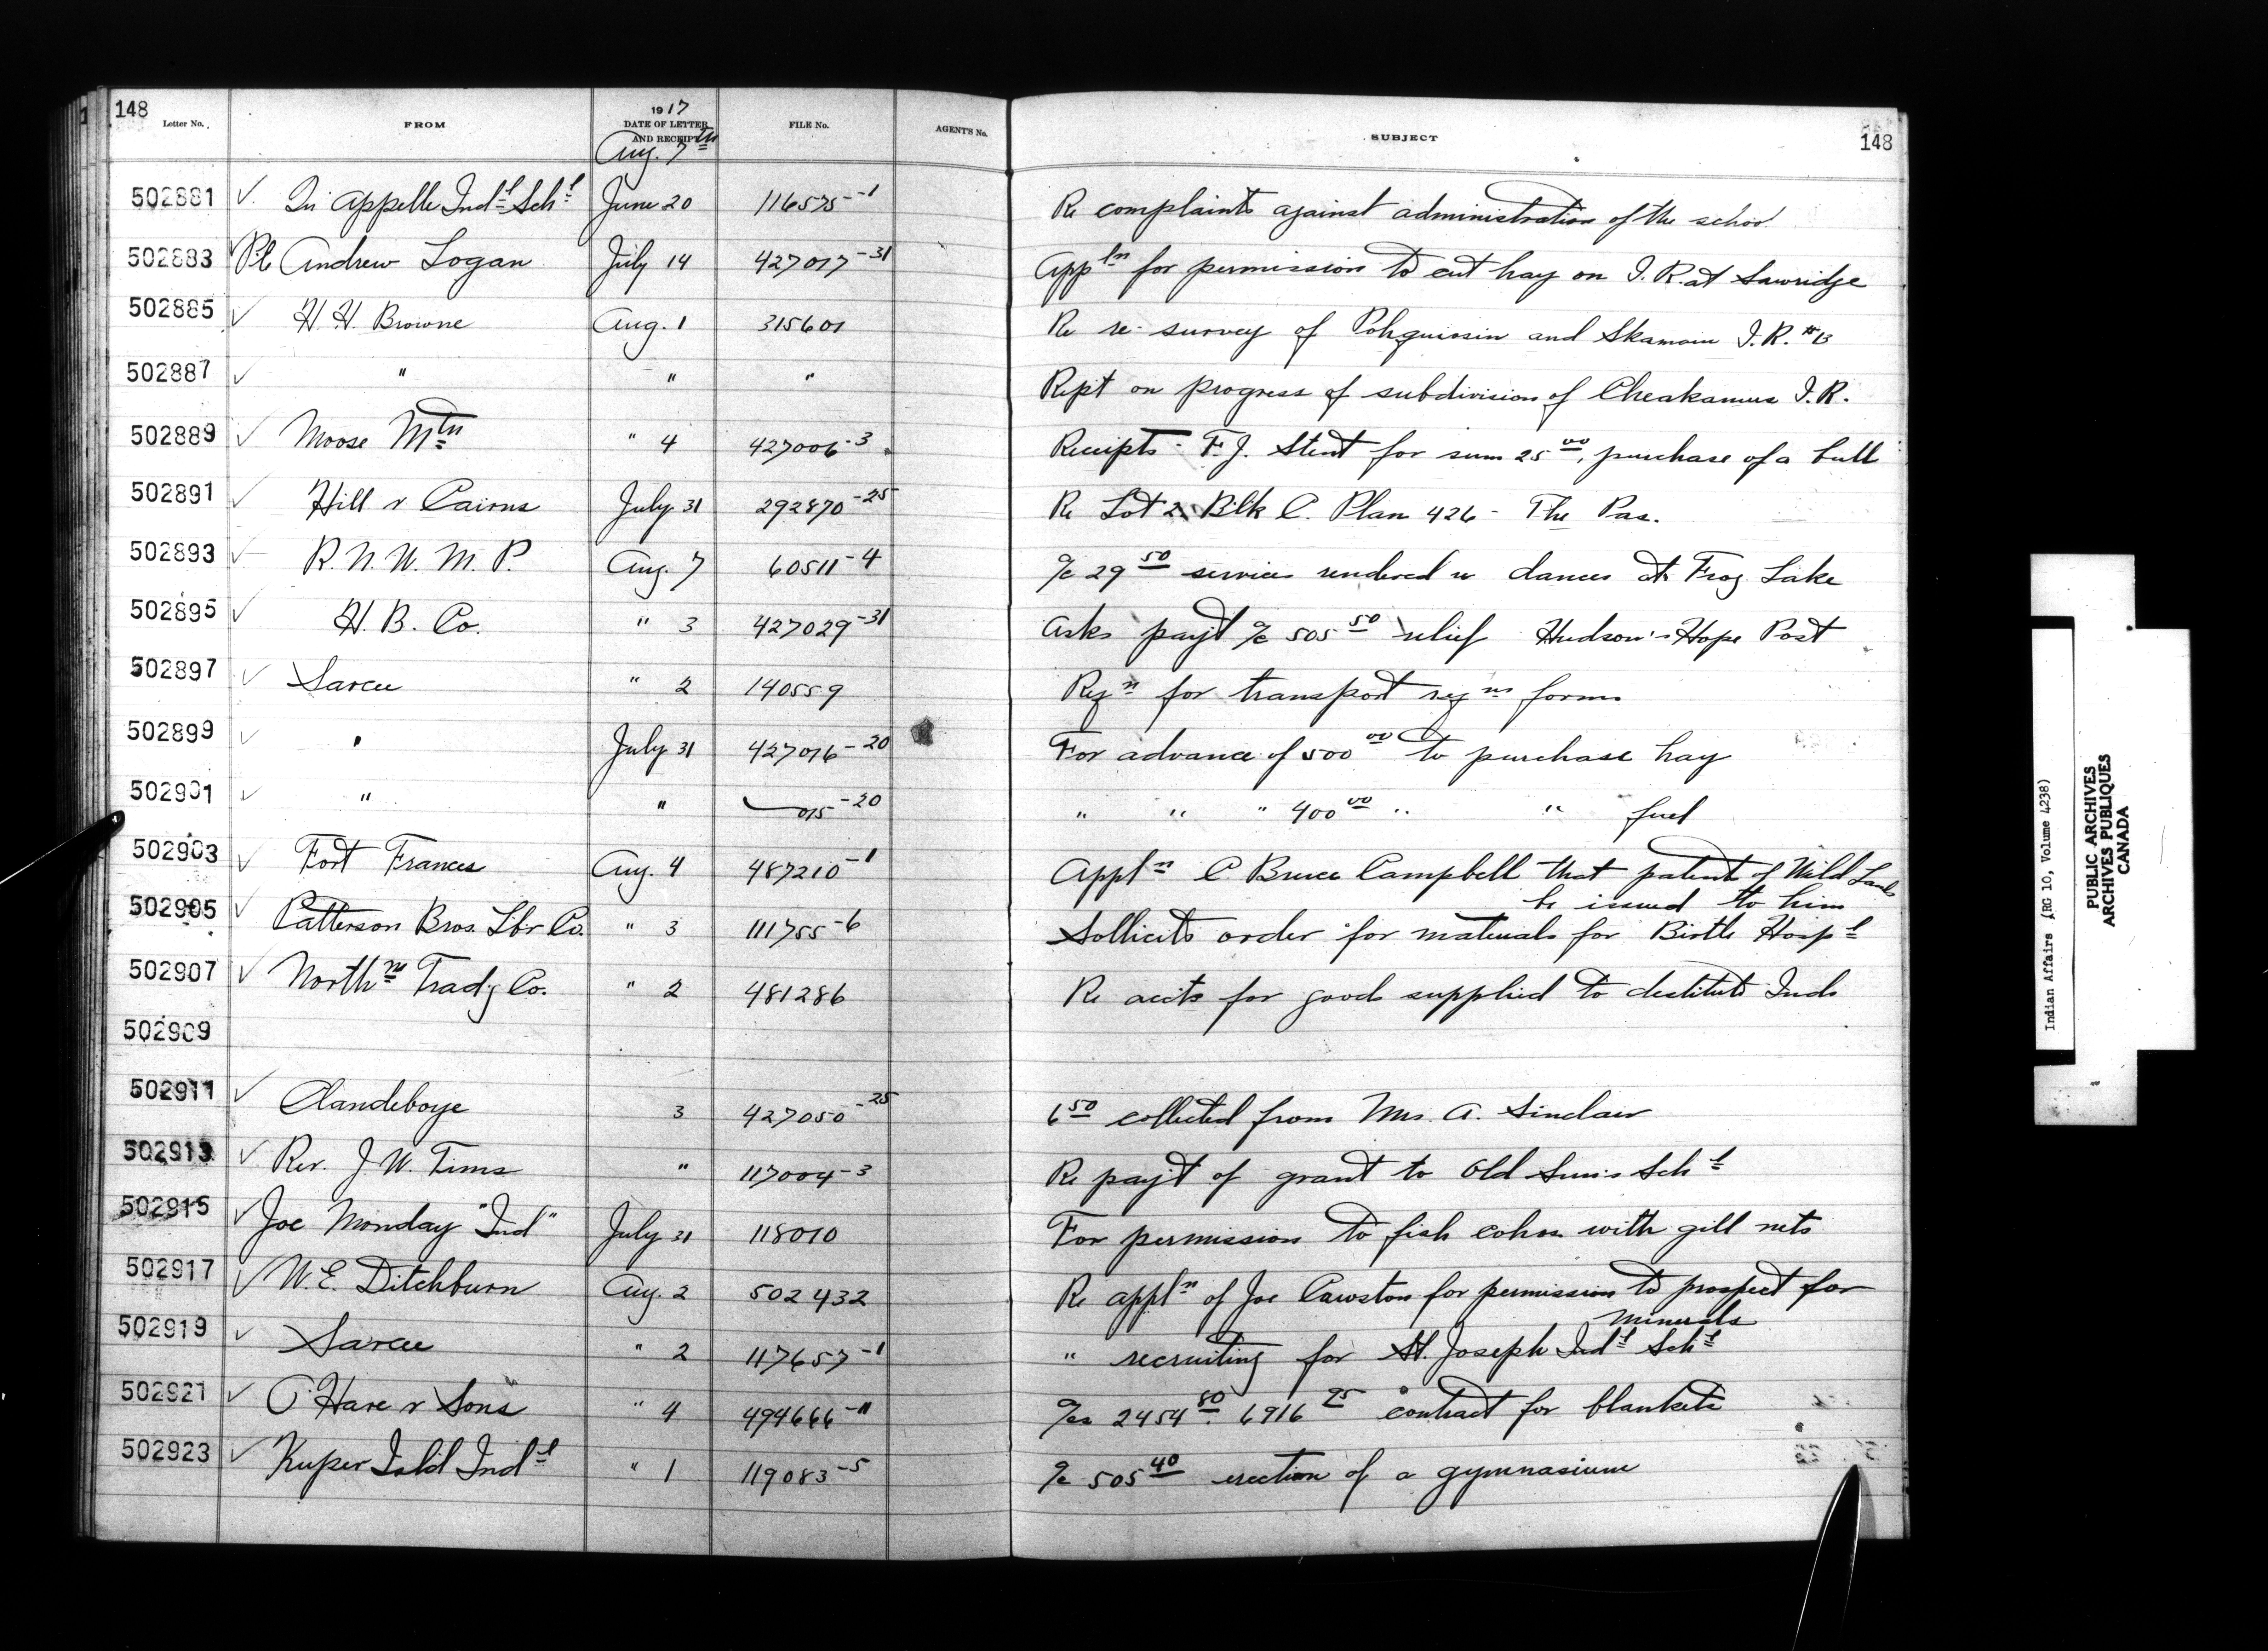 148
148
Letter No. FROM 1917 DATE OF LETTER AND RECEIPT FILE No. AGENT'S No. SUBJECT
Aug. 7th
502881 ✓ Qu'appelle Indl Schl June 20 116575-1 Re complaints against administration of the school
502883 Pl Andrew Logan July 14 427017-31 Appln for permission to cut hay on I.R. at Sawridge
502885 ✓ H. H. Browne Aug. 1 315601 Re re-survey of and Skamain I.R. #13
502887 ✓ " " " Rept on progress of subdivision of Cheakamus I.R.
502889 ✓ Moose Mtn " 4 427006-3 Receipts - F.J. Stent for sum 25 00, purchase of a bull
502891 ✓ Hill & Cairns July 31 292870-25 Re Lot 2 Blk C. Plan 426 - The Pas.
502893 ✓ R. N. W. M. P. Aug. 7 60511-4 a/c 29 50 services rendered re dances at Frog Lake
502895 ✓ H. B. Co. " 3 427029-31 Asks payt a/c 505 50 relief Hudson's Hope Post
502897 ✓ Sarcee " 2 140559 Reqn for transport reqns forms
502899 ✓ " July 31 427016-20 For advance of 500 00 to purchase hay
502901 ✓ " " 015-20 " " " 400 00 " " fuel
502903 ✓ Fort Frances Aug. 4 487210-1 Appln C. Bruce Campbell that patent of Wild Lands
be issued to him
502905 ✓ Patterson Bros. Lbr Co. " 3 111755-6 Sollicits order for materials for Birtle Hospl
502907 ✓ Northrn Tradg Co. " 2 481286 Re accts for goods supplied to destitute Inds
502909
502911 ✓ Clandeboye 3 427050-25 6 50 collected from Mrs. A. Sinclair
502913 ✓ Rev. J. W. Tims " 117004-3 Re payt of grant to Old Sun's Schl
502915 ✓ Joe Monday "Ind" July 31 118010 For permission to fish cohos with gill nets
502917 ✓ W. E. Ditchburn Aug. 2 502432 Re appln of Joe Cawston for permission to prospect for
minerals
502919 ✓ Sarcee " 2 117657-1 " recruiting for St. Joseph Indl Schl
502921 ✓ O'Hare & Sons " 4 494666-11 a/cs 2454 80 6916 25 contract for blankets
502923 ✓ Kuper Isld Indl " 1 119083-5 a/c 505 40 erection of a gymnasium
Indian Affairs (RG 10, Volume 4238)
PUBLIC ARCHIVES
ARCHIVES PUBLIQUES
CANADA